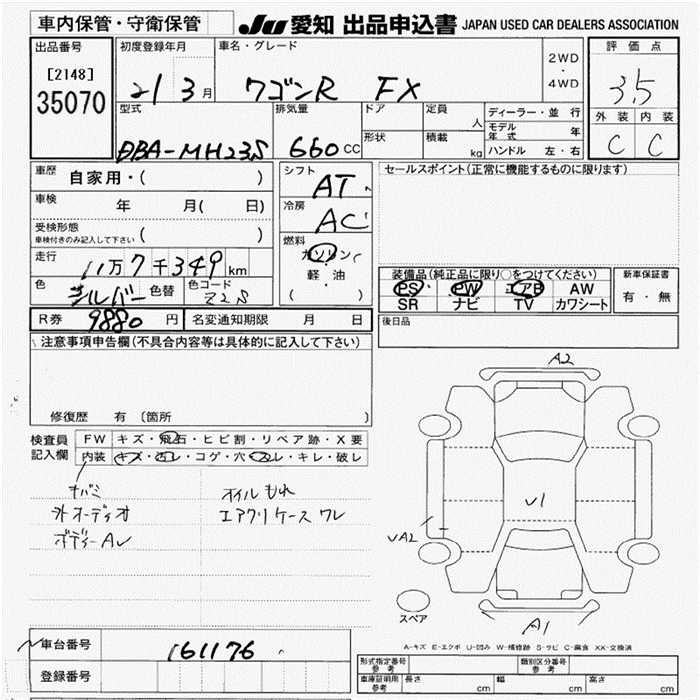 車内保管・守衛保管
JU 愛知 出品申込書 JAPAN USED CAR DEALERS ASSOCIATION
出品番号
[2148]
35070
初度登録年月
21 3月
車名・グレード
ワゴンR FX
2WD
・
4WD
評価点
3.5
外装 内装
C C
型式
DBA-MH23S
排気量
660 CC
ドア
形状
定員 人
積載 kg
ディーラー・並行
モデル年式 年
ハンドル 左・右
車歴
自家用・( )
車検 年 月( 日)
受検形態
(車検付きのみ記入して下さい)
走行
11万7千349km
色 シルバー 色替 色コード Z2S
シフト
AT
冷房
AC
燃料
ガソリン
軽・油
( )
セールスポイント(正常に機能するものに限ります)
装備品(純正品に限り○をつけてください)
PS PW エアB AW
SR ナビ TV カワシート
新車保証書
有・無
R券 9880円 名変通知期限 月 日
後日品
注意事項申告欄(不具合内容等は具体的に記入して下さい)
修復歴 有(箇所 )
検査員
記入欄
FW キズ・飛石・ヒビ割・リペア跡・X要
内装 キズ・汚レ・コゲ・穴・スレ・キレ・破レ
キバミ
外オーディオ
ボディー AU
オイルもれ
エアクリケース ワレ
A2
U1
UA2
A1
スペア
A-キズ E-エクボ U-凹み W-補修跡 S-サビ C-腐食 XX-交換済
車台番号 161176
登録番号
形式指定番号
参考
類別区分番号
参考
車庫証明用
参考
長さ cm 幅 cm 高さ cm